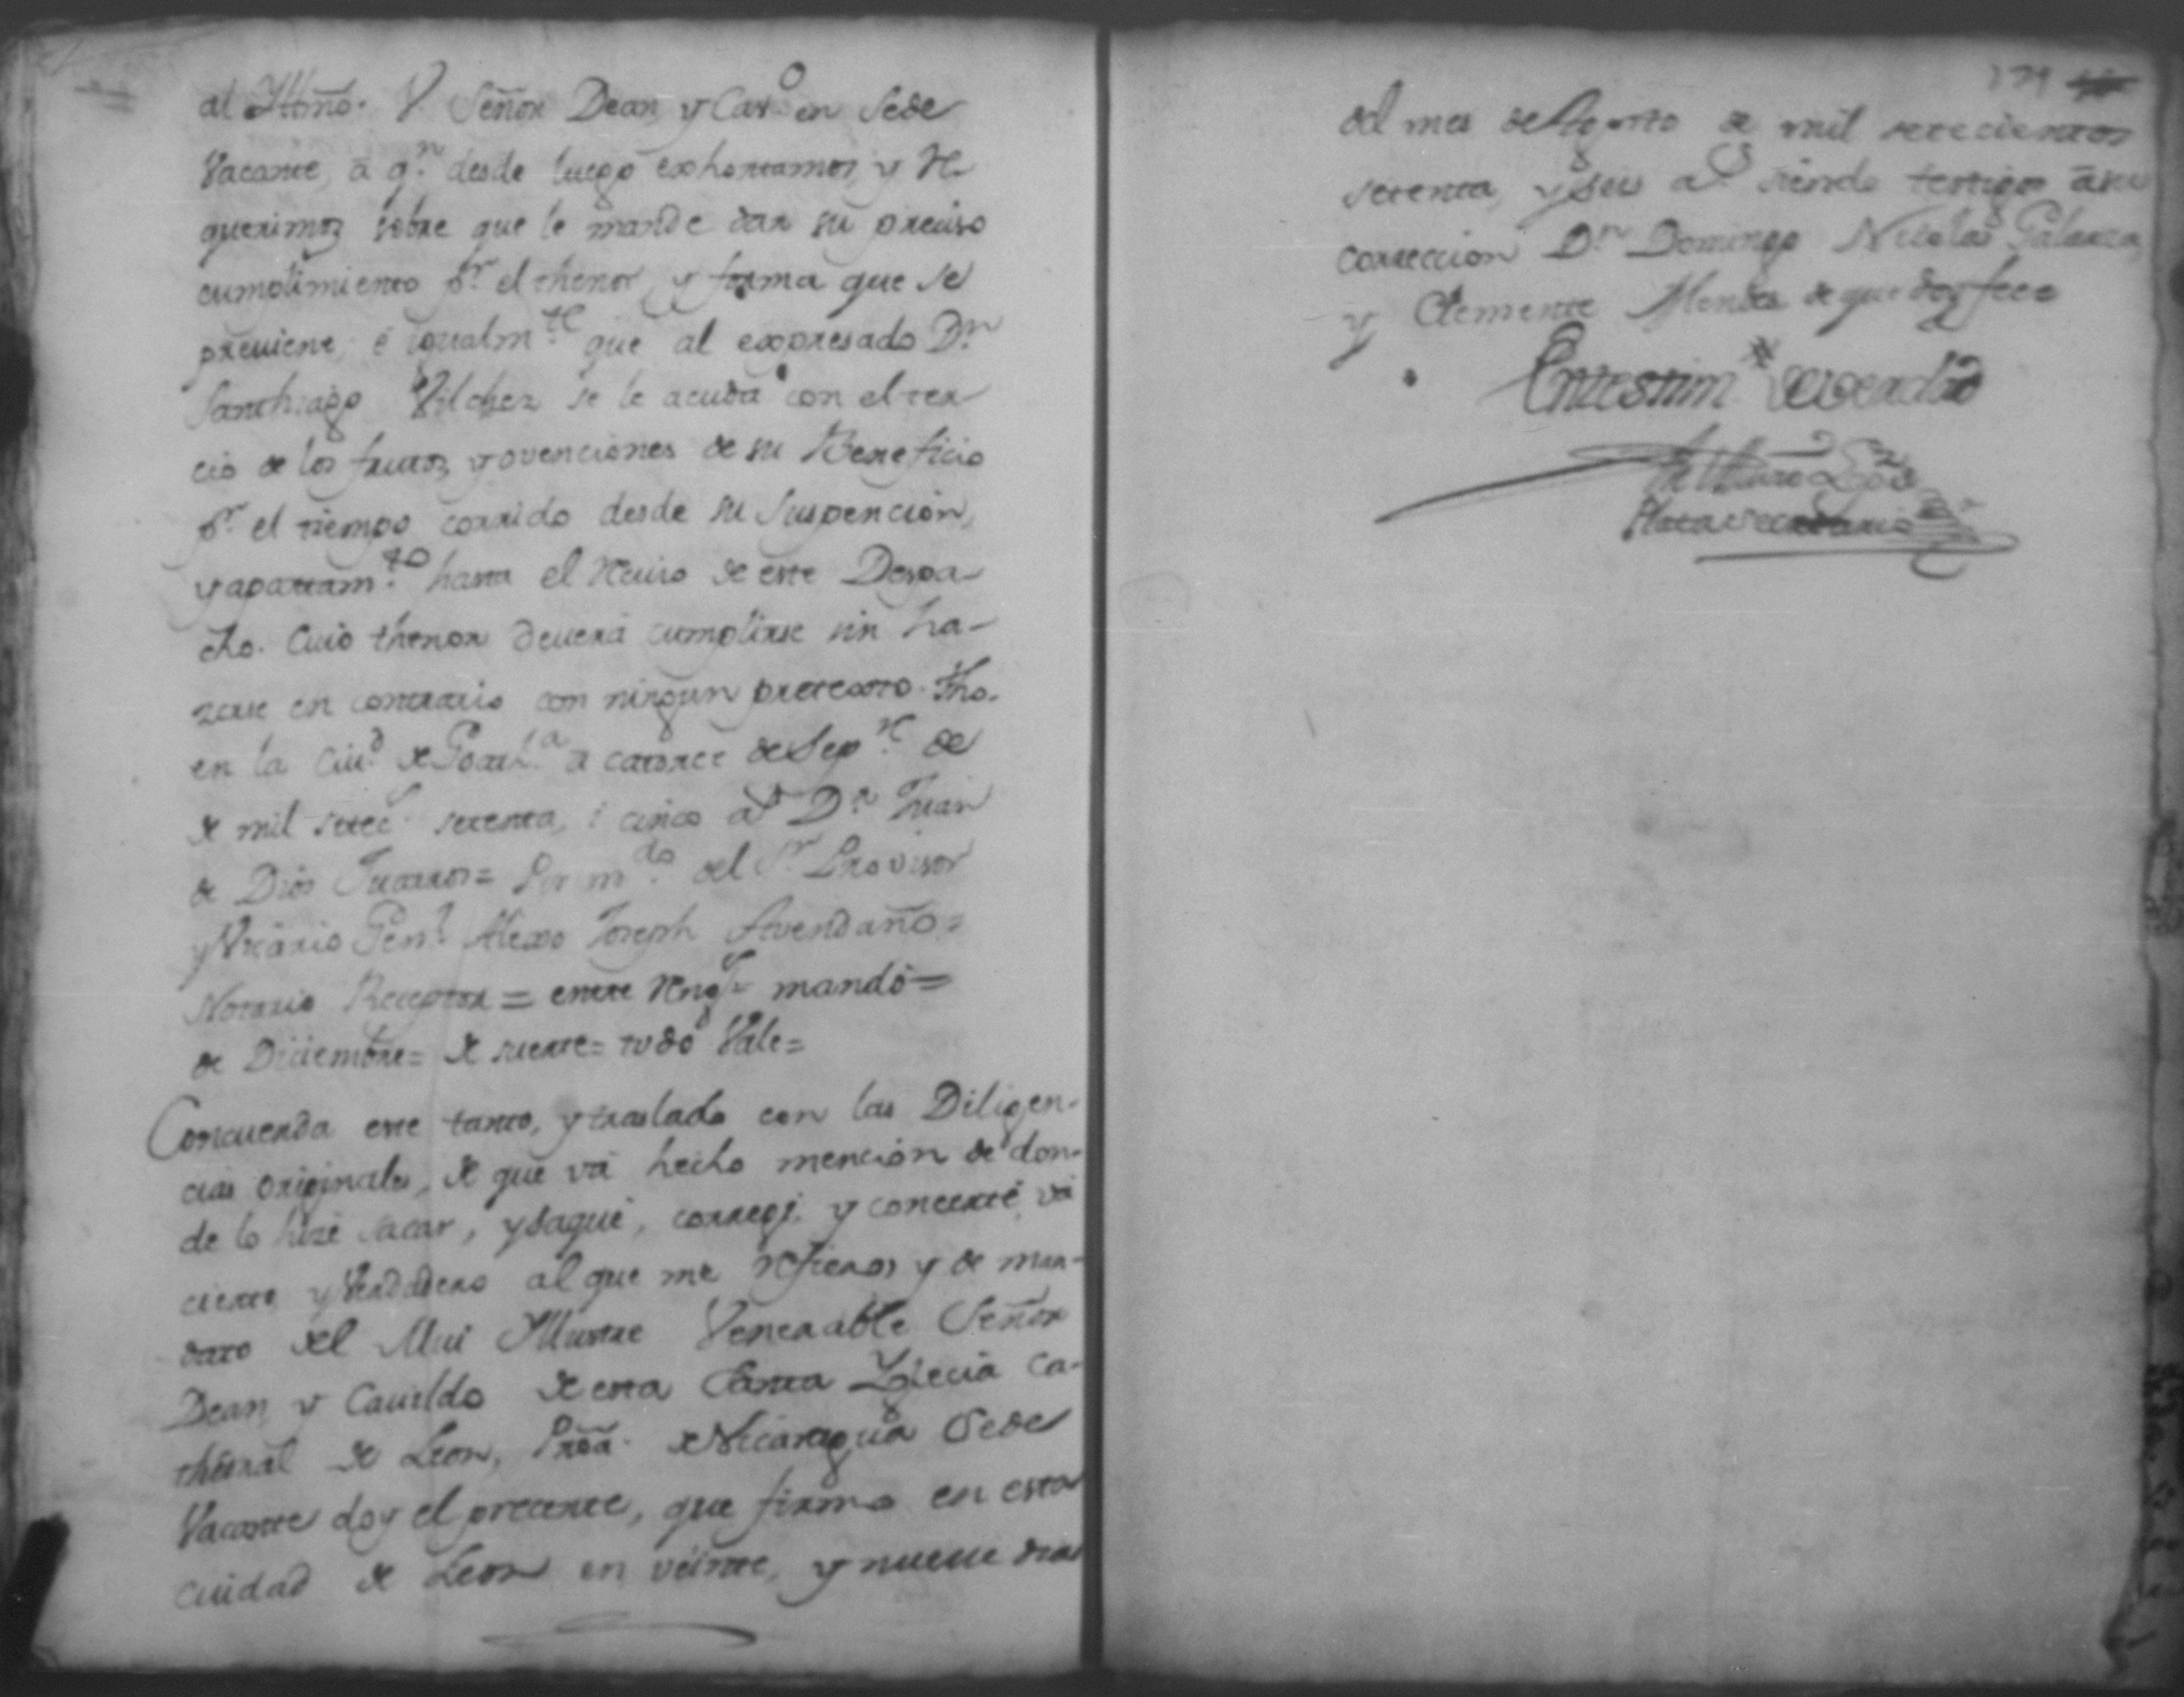 al Yllmõ. V. Señor Dean, y Cavᵒ en Sede
Vacante, a qⁿ. desde luego exhortamos, y Re-
querimos sobre que le mande dar su preciso
cumplimiento pʳ. el thenor, y forma que se
previene, é igualmᵗᵉ. que al expresado Dⁿ.
Santhiago Vilchez se le acuda con el ter-
cio de los frutos, y ovenciones de su Beneficio
pʳ. el tiempo corrido desde su suspencion,
y apartamᵗᵒ. hasta el Reciuo de este Despa-
cho. Cuio thenor deuerá cumplirse sin ha-
zerse en contrario con ningun pretexto. Fho.
en la Ciuᵈ. de Goathᵃ. a catorce de Sepʳᵉ. de
de mil setecˢ. setenta, i cinco aˢ. Dⁿ. Juan
de Dios Juarros = Por mᵈᵒ. del Sʳ. Provisor
y Vicario Genˡ. Alexo Joseph Avendaño =
Notario Receptor = entre Rengˢ = mandó =
de Diciembre = de suerte = todo Vale =
Concuerda este tanto, y traslado con las Diligen-
cias originales, de que vá hecho mención de don-
de lo hize sacar, y saqué, corregí, y concerté, vá
cierto, y Verdadero al que me refiero, y de man-
dato del Mui Yllustre Venerable Señor
Dean, y Cavildo de esta Santa Yglecia Ca-
thedral de Leon, Proã. de Nicaragua Sede
Vacante doy el precente, que firmo en esta
ciudad de Leon en veinte, y nueve dias
179
del mes de Agosto de mil setecientos
setenta, y seis aˢ. siendo testigos á su
correccion Dⁿ. Domingo Nicolas Galarza,
y Clemente Mendes de que doy feee
En testimᵒ de verdad
Secretario